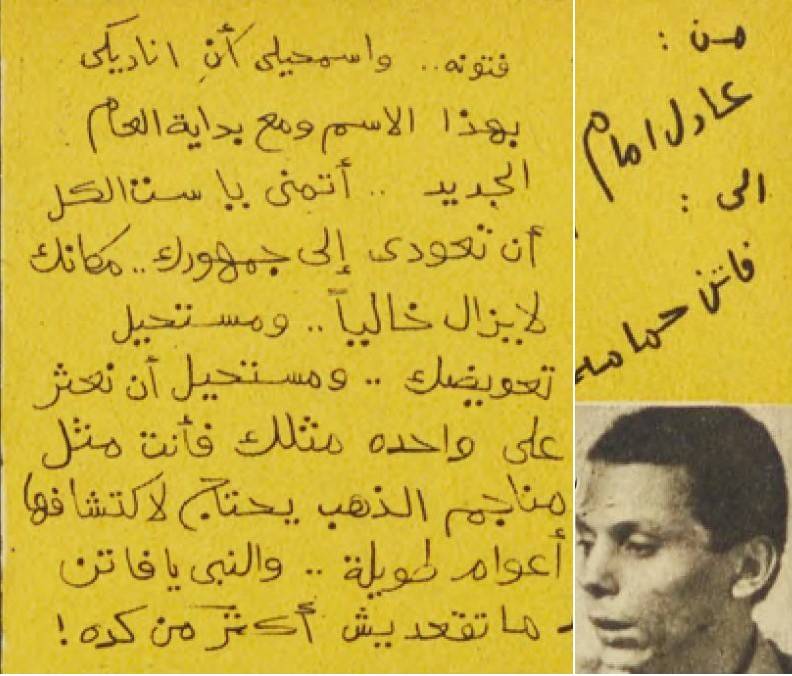 من :
عادل امام
الى :
فاتن حمامه
فتونه.. واسمحيلى أن اناديكى
بهذا الاسم ومع بداية العام
الجديد .. أتمنى يا ست الكل
أن تعودى إلى جمهورك.. مكانك
لايزال خالياً.. ومستحيل
تعويضك .. ومستحيل أن نعثر
على واحده مثلك فأنت مثل
مناجم الذهب يحتاج لاكتشافها
أعوام طويلة .. والنبى يا فاتن
ما تقعديش أكثر من كده !